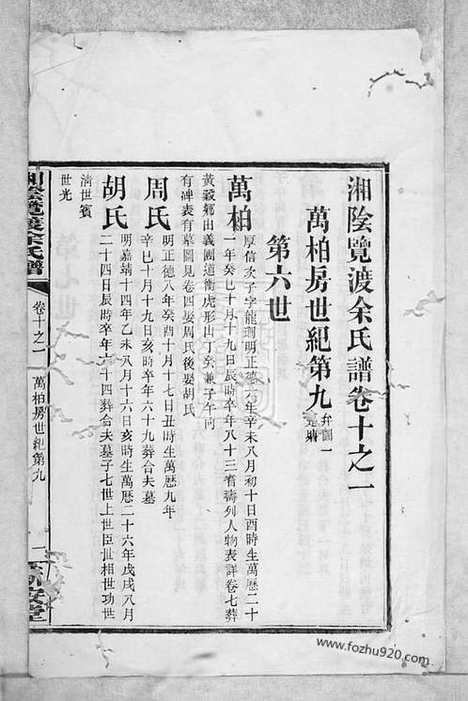 湘陰覽渡余氏譜卷十之一
萬柏房世紀第九
第六世
萬柏 厚信次子字龍珂明正德六年辛未八月初十日酉時生萬曆二十
一年癸巳十月十九日辰時卒年八十三耆壽列人物表詳卷七葬
黃穀鄉出義團道衝虎形山丁癸兼子午向
有碑表有墓圖見卷四娶周氏後娶胡氏
周氏 明正德八年癸酉十月十七日丑時生萬曆九年
辛巳十月十九日亥時卒年六十九葬合夫墓
胡氏 明嘉靖十四年乙未八月十六日亥時生萬曆二十六年戊戌八月
二十四日辰時卒年六十四葬合夫墓子七世上世臣世相世功世
淸世賓
世光
湘陰覽渡余氏譜
卷十之一
萬柏房世紀第九
www.fozhu920.com